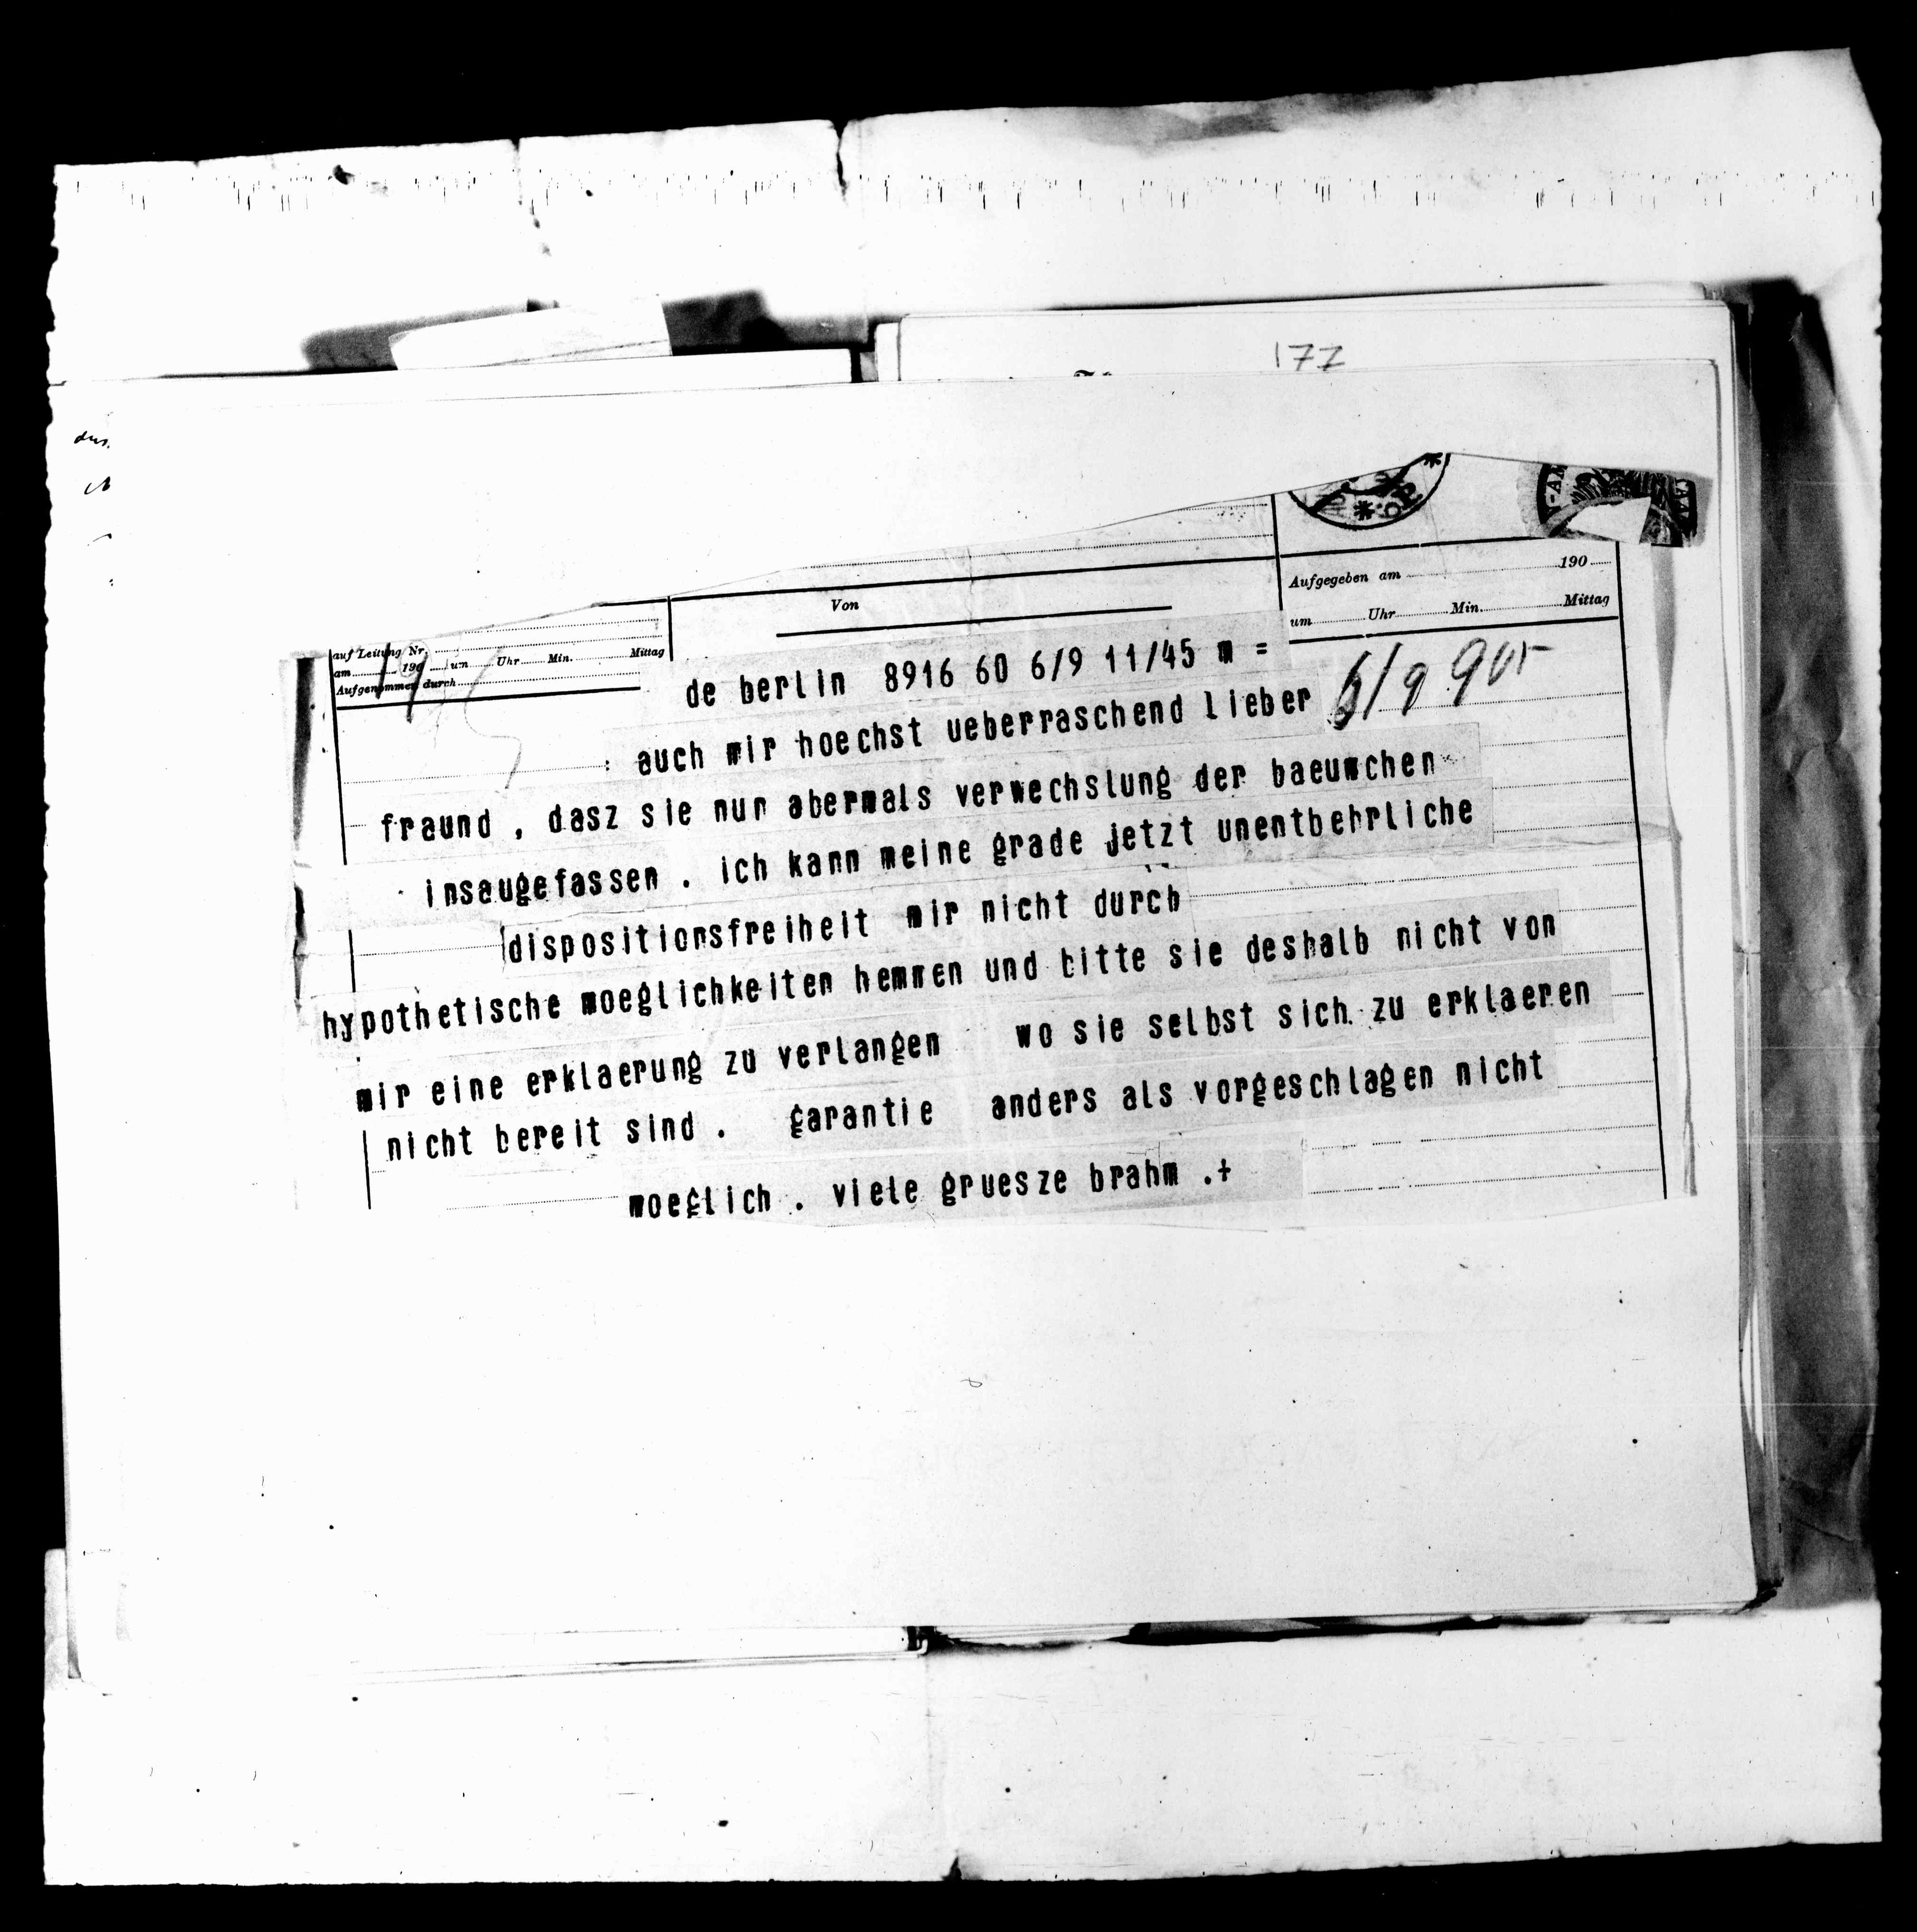 177
Von
Aufgegeben am 190
um Uhr Min. Mittag
auf Leitung Nr.
am 190 um Uhr Min. Mittag
Aufgenommen durch
de berlin 8916 60 6/9 11/45 m =
6/9 905
: auch mir hoechst ueberraschend lieber
fraund , dasz sie nun abermals verwechslung der baeumchen
insaugefassen . ich kann meine grade jetzt unentbehrliche
dispositionsfreiheit mir nicht durch
hypothetische moeglichkeiten hemmen und bitte sie deshalb nicht von
mir eine erklaerung zu verlangen wo sie selbst sich zu erklaeren
nicht bereit sind . garantie anders als vorgeschlagen nicht
moeglich . viele gruesze brahm .+